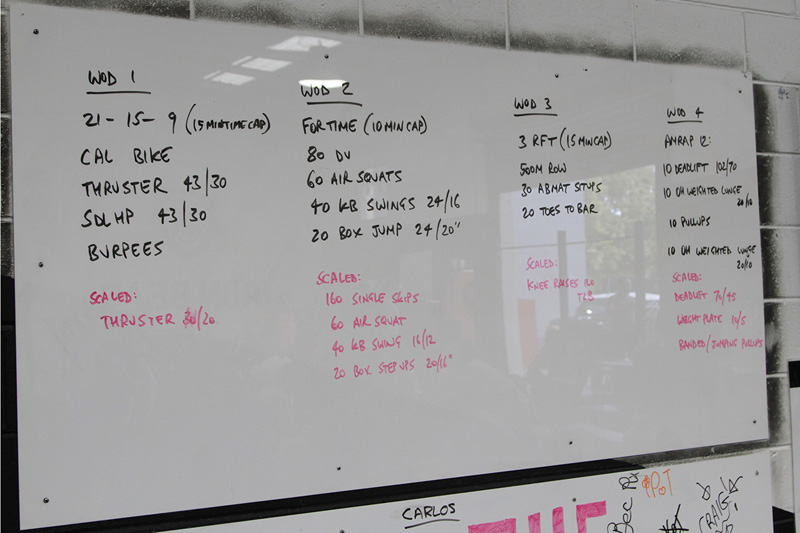 WOD 1
21-15-9 (15 MIN TIME CAP)
CAL BIKE
THRUSTER 43/30
SDLHP 43/30
BURPEES
SCALED:
THRUSTER 30/20
WOD 2
FOR TIME (10 MIN CAP)
80 DU
60 AIR SQUATS
40 KB SWINGS 24/16
20 BOX JUMP 24/20"
SCALED:
160 SINGLE SKIPS
60 AIR SQUAT
40 KB SWING 16/12
20 BOX STEPUPS 20/16"
WOD 3
3 RFT (15 MIN CAP)
500M ROW
30 ABMAT SITUPS
20 TOES TO BAR
SCALED:
KNEE RAISES
WOD 4
AMRAP 12:
10 DEADLIFT 102/70
10 OH WEIGHTED LUNGE
20/10
10 PULLUPS
10 OH WEIGHTED LUNGE
20/10
SCALED:
DEADLIFT 70/45
WEIGHT PLATE 10/5
BANDED/JUMPING PULLUPS
CARLOS
THE
Bec
POT
CRAIG